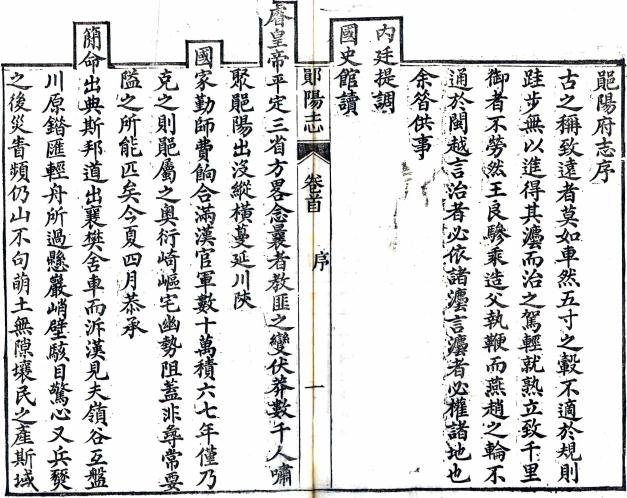 鄖陽府志序
古之稱致遠者莫如車然五寸之轂不適於規則
跬步無以進得其灋而治之駕輕就熟立致千里
御者不勞然王良驂乘造父執鞭而燕趙之輪不
通於閩越言治者必依諸灋言灋者必權諸地也
余昝供事
內廷提調
國史館讀
鄖陽志
卷首
序
一
睿皇帝平定三省方畧念曩者教匪之變伏莽數千人嘯
聚鄖陽出沒縱橫蔓延川陝
國家勤師費餉合滿漢官軍數十萬積六七年僅乃
克之則鄖屬之奧衍崎嶇宅幽勢阻蓋非尋常要
隘之所能匹矣今夏四月恭承
簡命出典斯邦道出襄樊舍車而泝漢見夫嶺谷互盤
川原錯匯輕舟所過懸巖峭壁駭目驚心又兵燹
之後災眚頻仍山不句萌土無隙壤民之產斯域